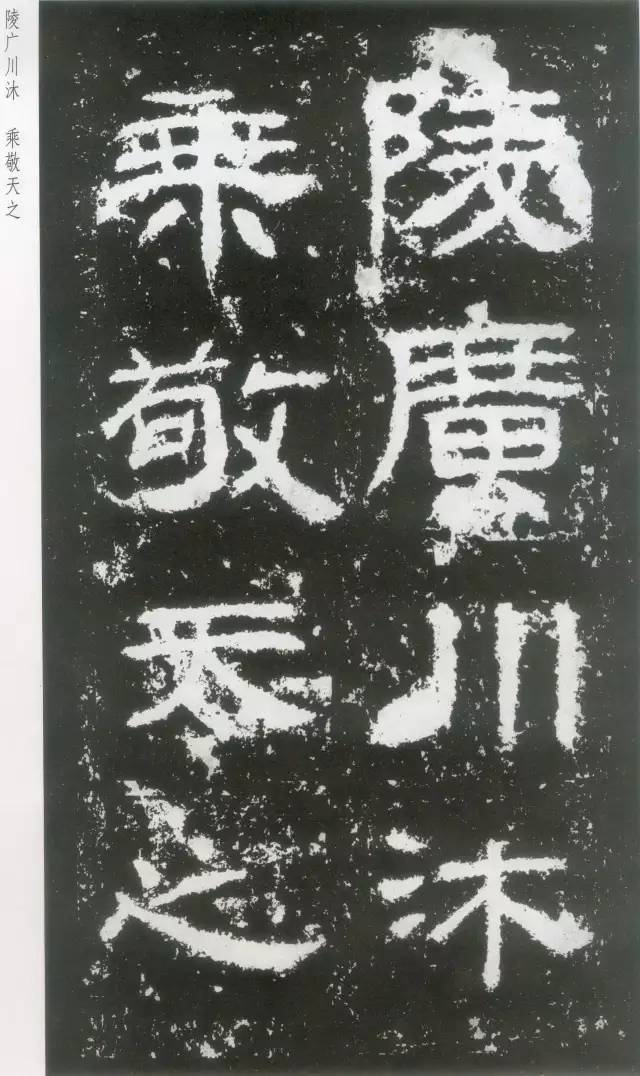 陵廣川沐
乘敬天之
陵广川沐 乘敬天之